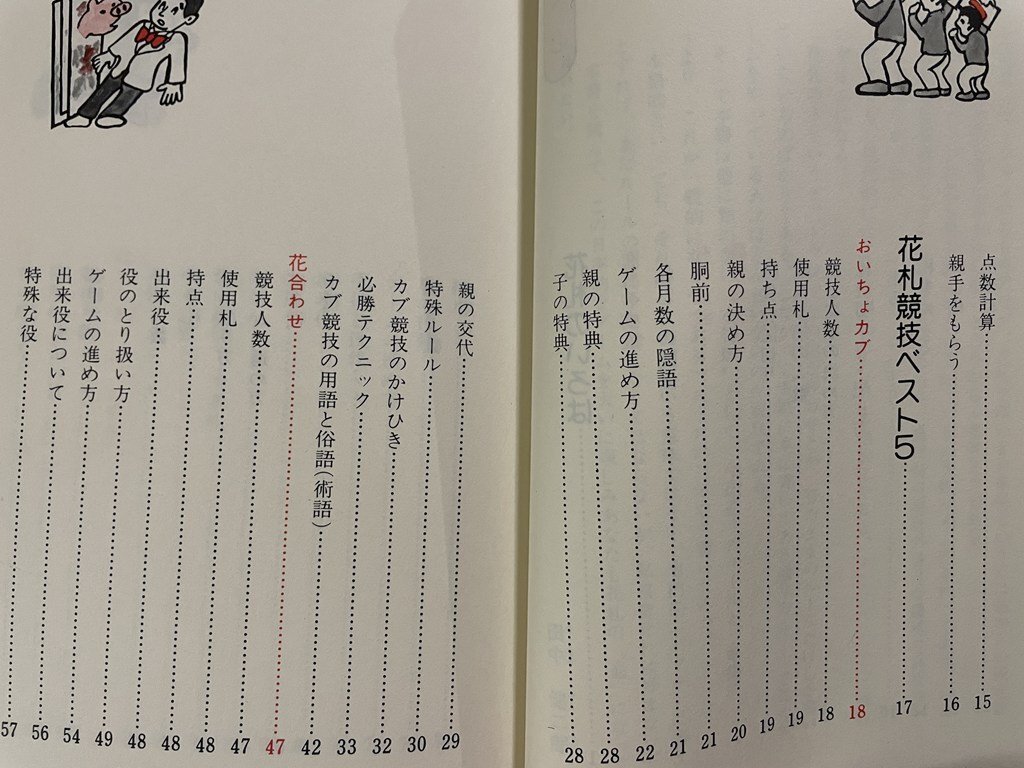 点数計算……15
親手をもらう……16
花札競技ベスト5……17
おいちょカブ……18
競技人数……18
使用札……19
持ち点……19
親の決め方……20
胴前……21
各月数の隠語……21
ゲームの進め方……22
親の特典……28
子の特典……28
親の交代……29
特殊ルール……30
カブ競技のかけひき……32
必勝テクニック……33
カブ競技の用語と俗語(術語)……42
花合わせ……47
競技人数……47
使用札……48
持点……48
出来役……48
役のとり扱い方……49
ゲームの進め方……54
出来役について……56
特殊な役……57